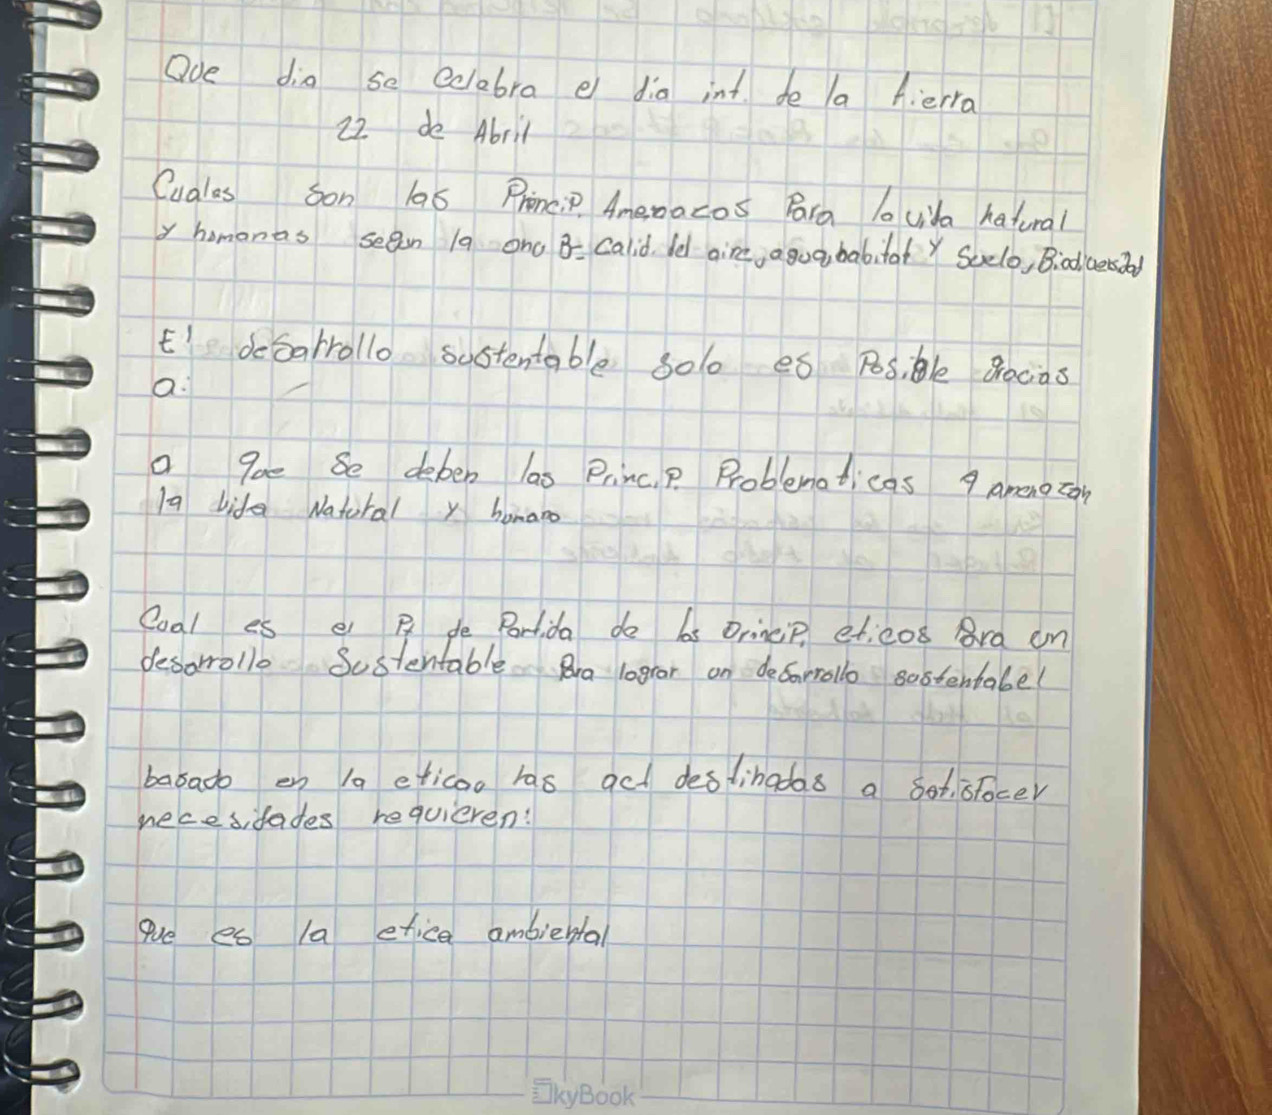 Que dia se celebra el dia int. de la tierra
22 de Abril
Cuales son las Princip. Amenacas Para la vida natural
y humanas segun la onu B= Calid. del aire, agua, habitat y Suelo, Biodiversidad
El desarrollo sustentable solo es Posible gracias
a:
a que se deben las Princ.P. Problematicas q amenazan
la vida Natural y humano
Cual es el Pt de Partida de los Princip. eticos Para un
desarrollo Sustentable Para lograr un desarrollo sustentabel
basado en la etica, las act destinadas a satisfacer
necesidades requieren:
Que es la etica ambiental
SkyBook